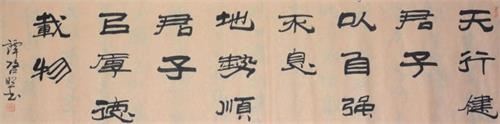 天行健
君子
以自强
不息
地勢順
君子
㠯厚德
載物
譚啓